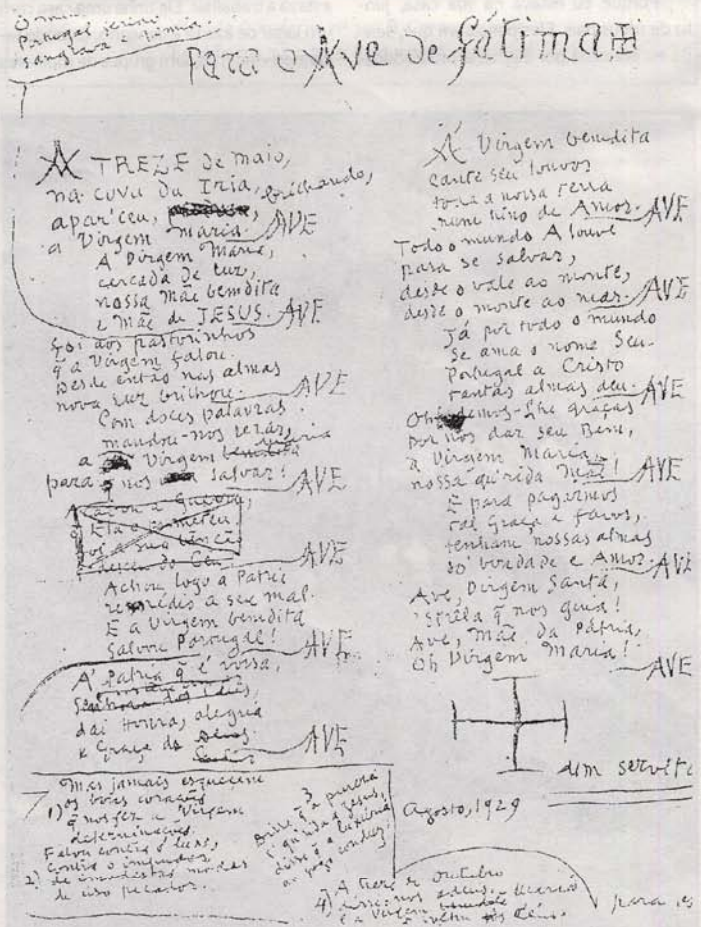 Portugal
Para o Ave de fátima
A TREZE de maio,
na cova da Iria,
apar'ceu, brilhando,
a Virgem Maria. AVE
A Virgem Maria,
cercada de luz,
nossa Mãe bemdita
e Mãe de JESUS. AVE
Foi aos pastorinhos
q̃ a Virgem falou.
Desde então nas almas
nova luz brilhou. AVE
Com doces palavras
mandou-nos rezar,
a Virgem Maria
para nos salvar! AVE
AVE
Achou logo a Patria
remédio a seu mal.
E a Virgem bemdita
Salvou Portugal! AVE
A' Patria q̃ é vossa,
Senhora dos Céus,
dai Honra, alegria
e Graça de Deus. AVE
Mas jamais esquecem
1) os corações
q̃ nos fez a Virgem
determinações.
Falou contra o luxo,
2) contra o impudor
de imodestas modas
de uso pecador.
3
Disse q̃ a pureza
a Jesus,
disse q̃ a luxúria
ao fogo conduz.
4) A treze de outubro
disse-nos adeus.
e a Virgem
Céus.
À Virgem bemdita
cante seu louvor
toda a nossa terra
num hino de Amor. AVE
Todo o mundo A louve
para se salvar,
desde o vale ao monte,
desde o monte ao mar. AVE
Já por todo o mundo
se ama o nome Seu.
Portugal a Cristo
tantas almas deu. AVE
Oh! demos-Lhe graças
por nos dar seu Bem,
à Virgem Maria,
nossa qu'rida Mãe! AVE
E para pagarmos
tal Graça e favor,
tenham nossas almas
só bondade e Amor. AVE
Ave, Virgem Santa,
'strêla q̃ nos guia!
Ave, Mãe da Pátria,
Oh Virgem Maria! AVE
um servita
Agosto, 1929
para